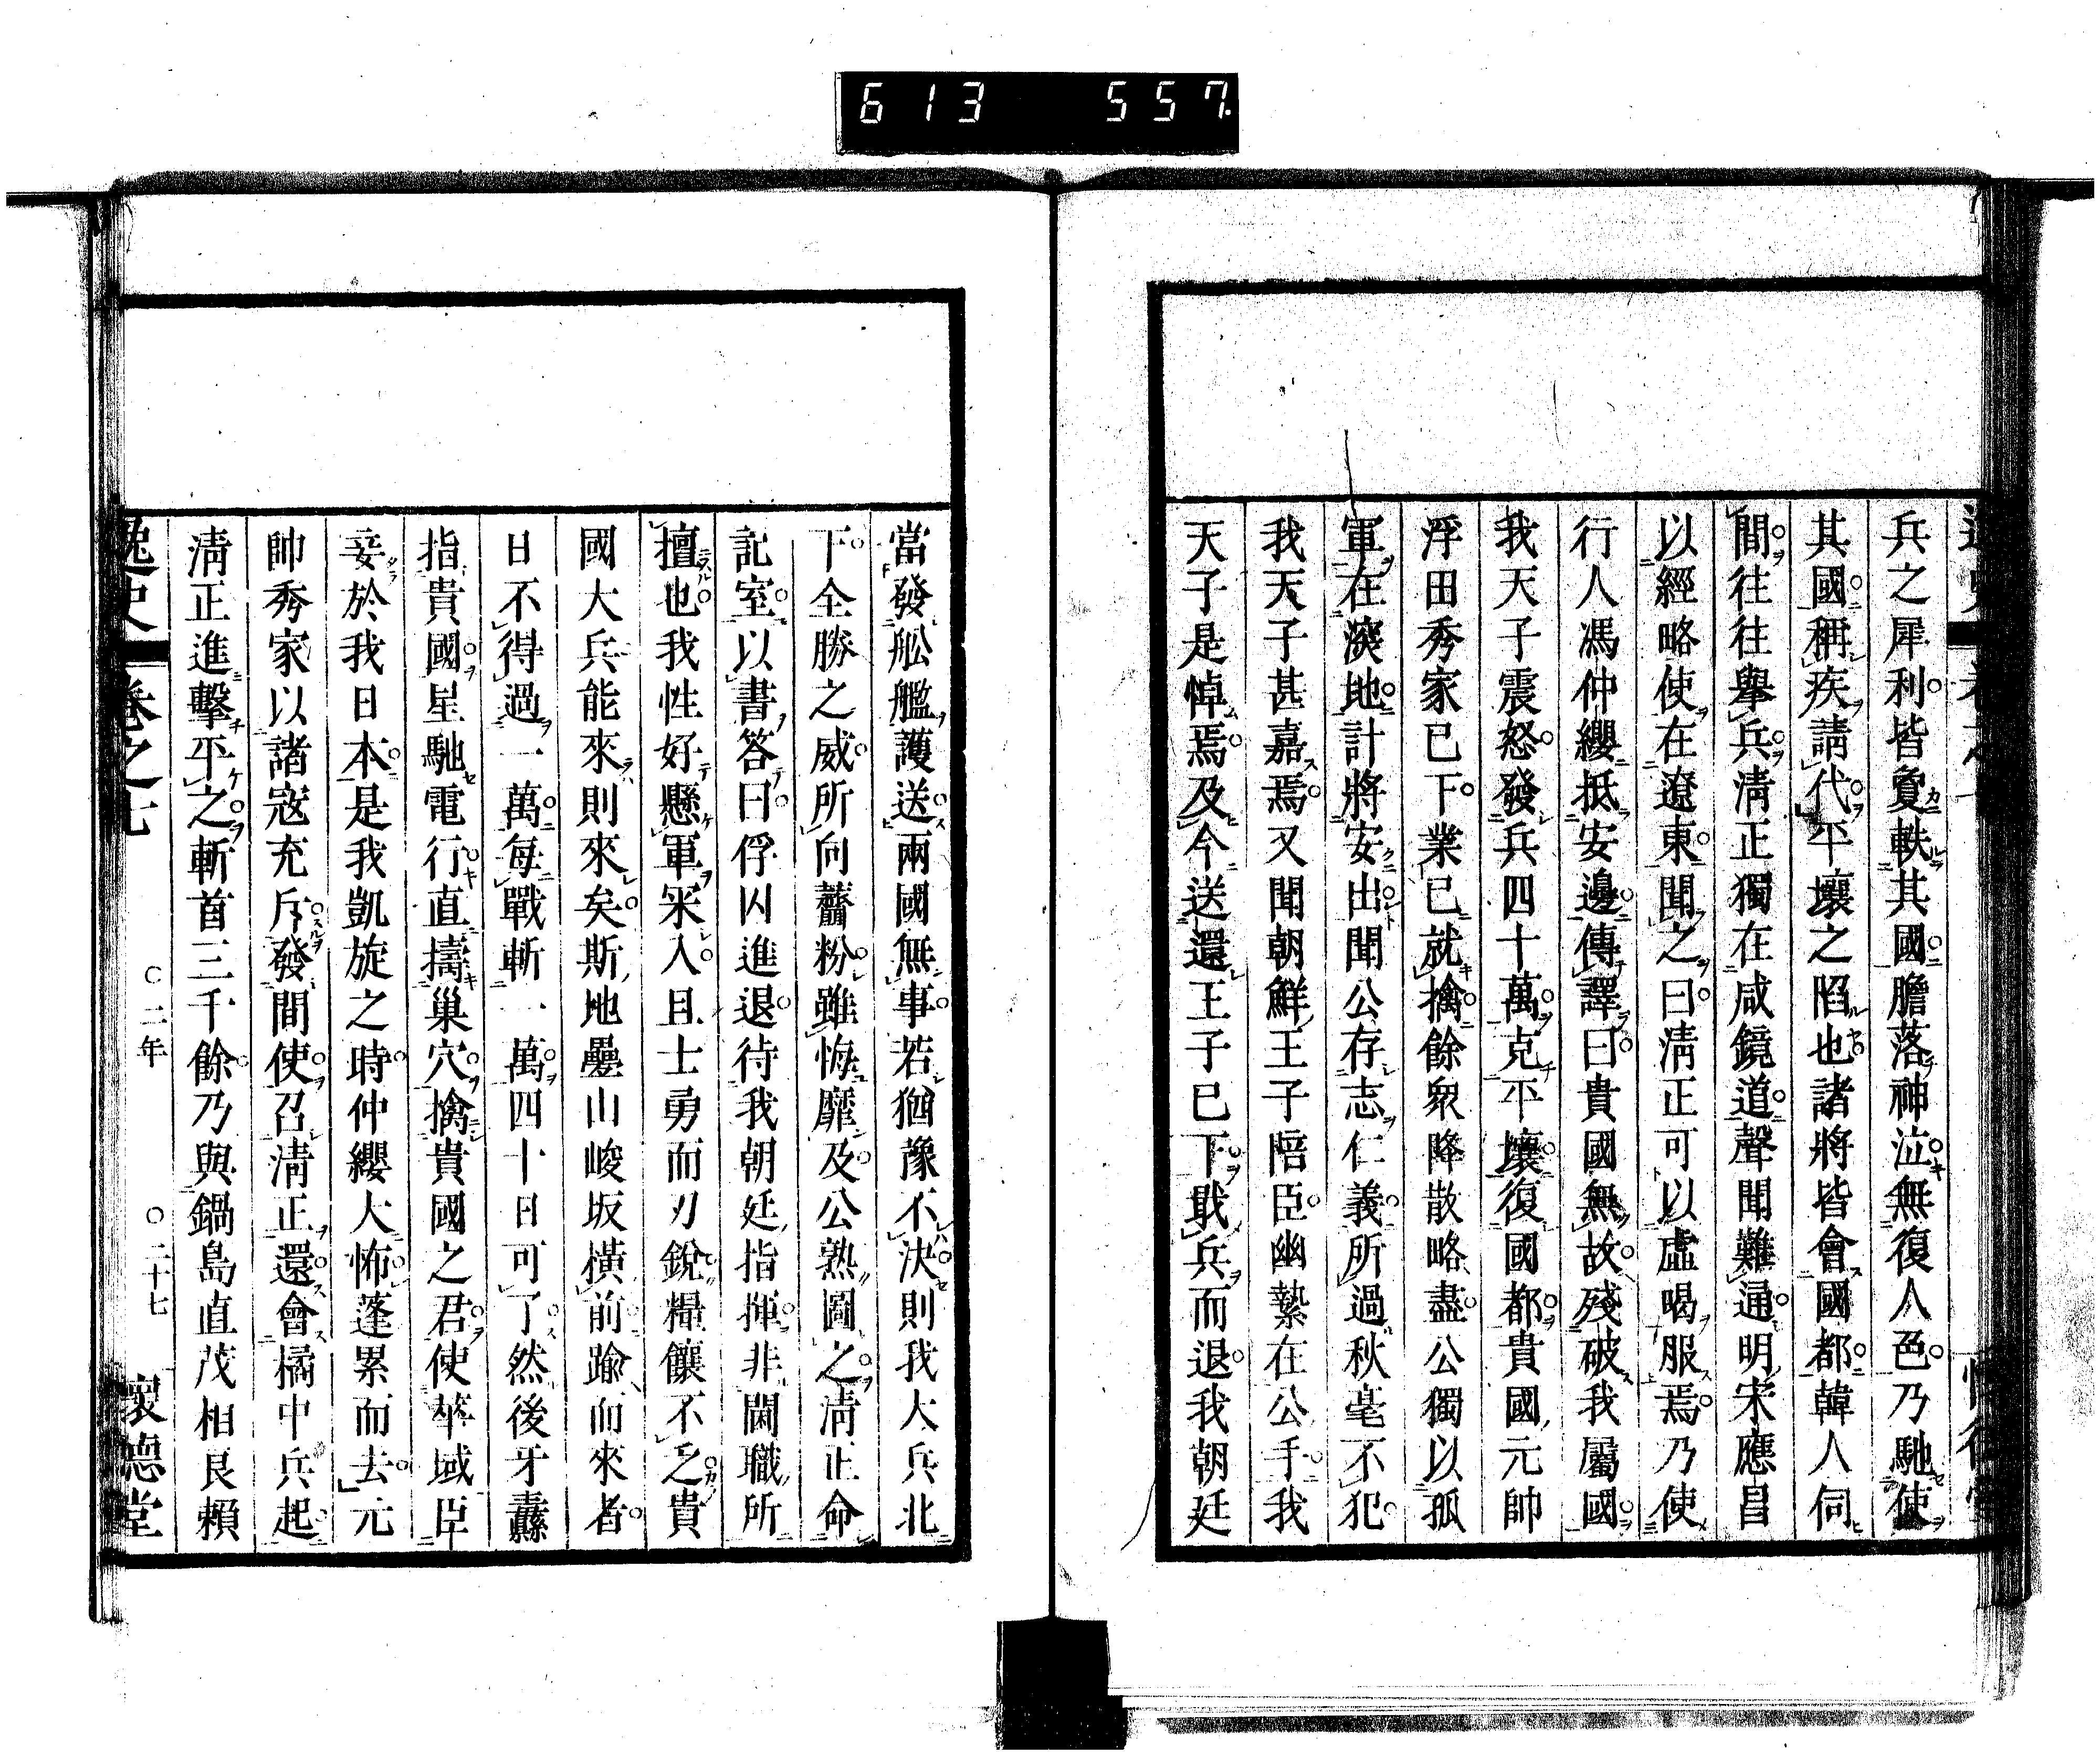 613 557
兵之犀利皆敻軼其國膽落神泣無復人色乃馳使
其國稱疾請代平壤之陷也諸將皆會國都韓人伺
間往往舉兵淸正獨在咸鏡道聲聞難通明宋應昌
以經略使在遼東聞之曰淸正可以虛喝服焉乃使
行人馮仲纓抵安邊傳譯曰貴國無故殘破我屬國
我天子震怒發兵四十萬克平壤復國都貴國元帥
浮田秀家已下業已就擒餘衆降散略盡公獨以孤
軍在漠地計將安出聞公存志仁義所過秋毫不犯
我天子甚嘉焉又聞朝鮮王子陪臣幽縶在公手我
天子是悼焉及今送還王子已下戢兵而退我朝廷
當發舩艦護送兩國無事若猶豫不決則我大兵北
下全勝之威所向虀粉雖悔靡及公熟圖之淸正命
記室以書答曰俘囚進退待我朝廷指揮非閫職所
擅也我性好懸軍罙入且士勇而刃銳糧饟不乏貴
國大兵能來則來矣斯地疊山峻坂橫前踰而來者
日不得過一萬每戰斬一萬四十日可了然後牙纛
指貴國星馳電行直擣巢穴擒貴國之君使華域臣
妾於我日本是我凱旋之時仲纓大怖蓬累而去元
帥秀家以諸寇充斥發間使召淸正還會橘中兵起
淸正進擊平之斬首三千餘乃與鍋島直茂相良賴
逸史 卷之七 二年 二十七 懷德堂